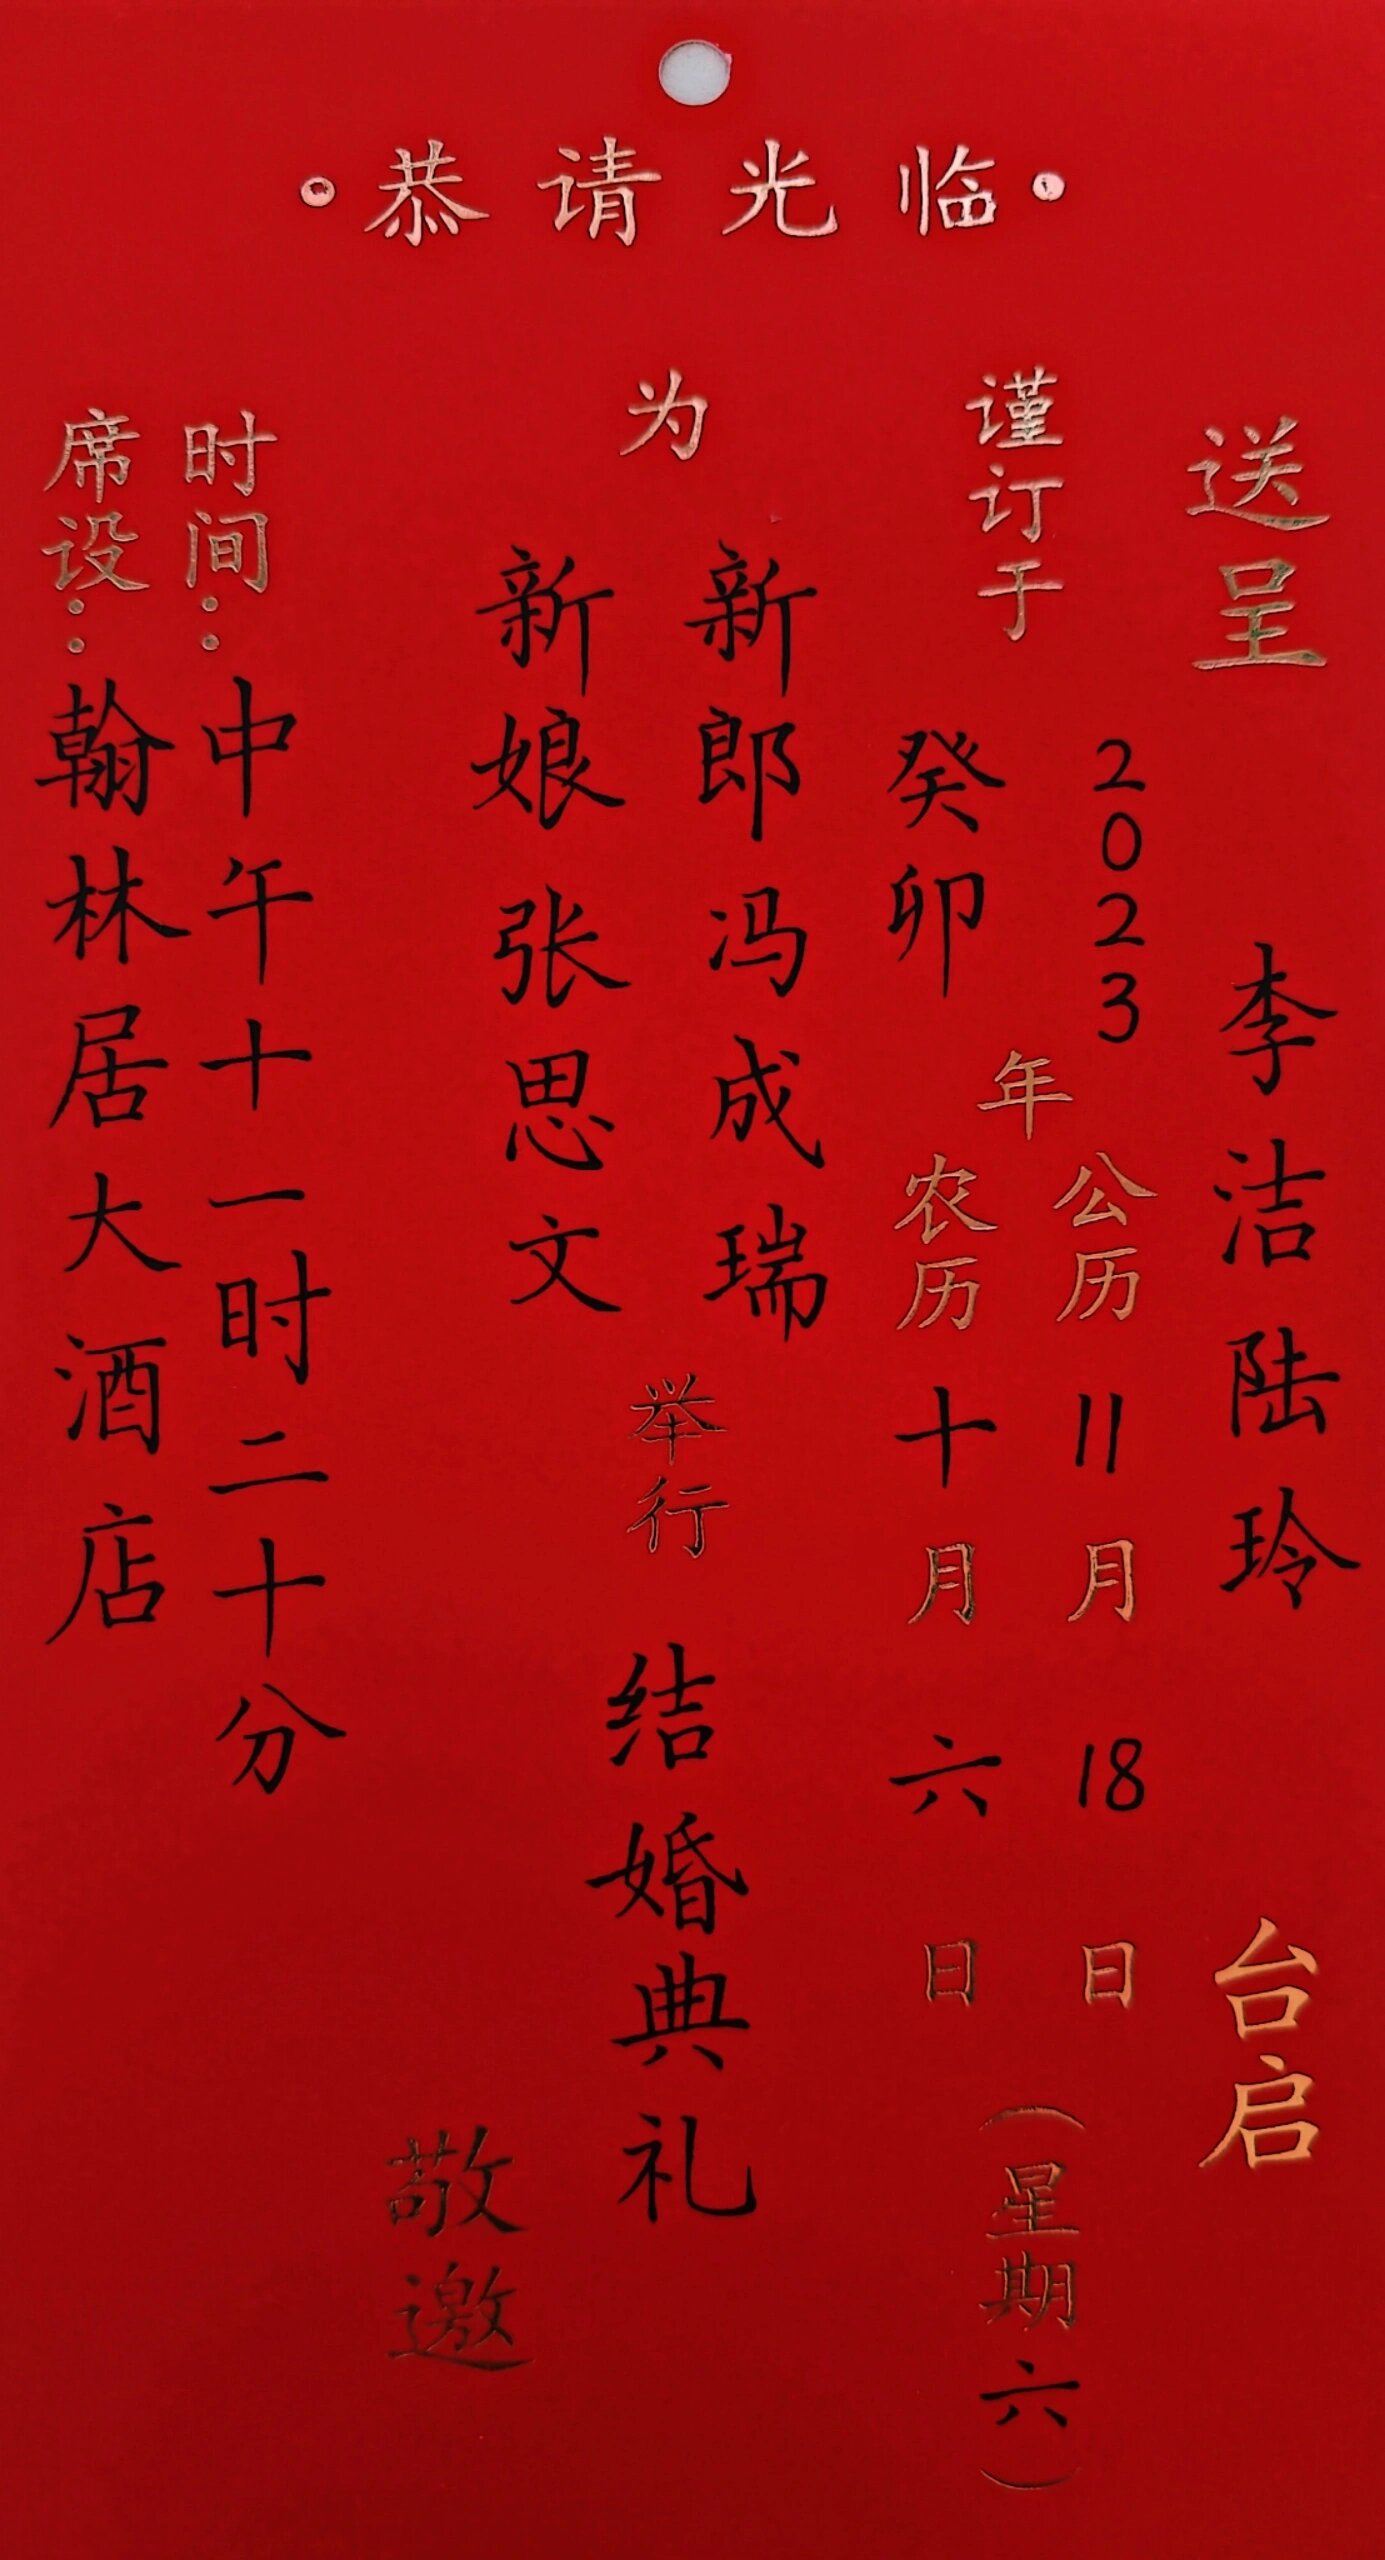 ·恭请光临·
送呈 李洁陆玲 台启
谨订于
2023
癸卯
年
公历11月18日
农历十月六日
（星期六）
为
新郎冯成瑞
新娘张思文
举行
结婚典礼
敬邀
时间：中午十一时二十分
席设：翰林居大酒店